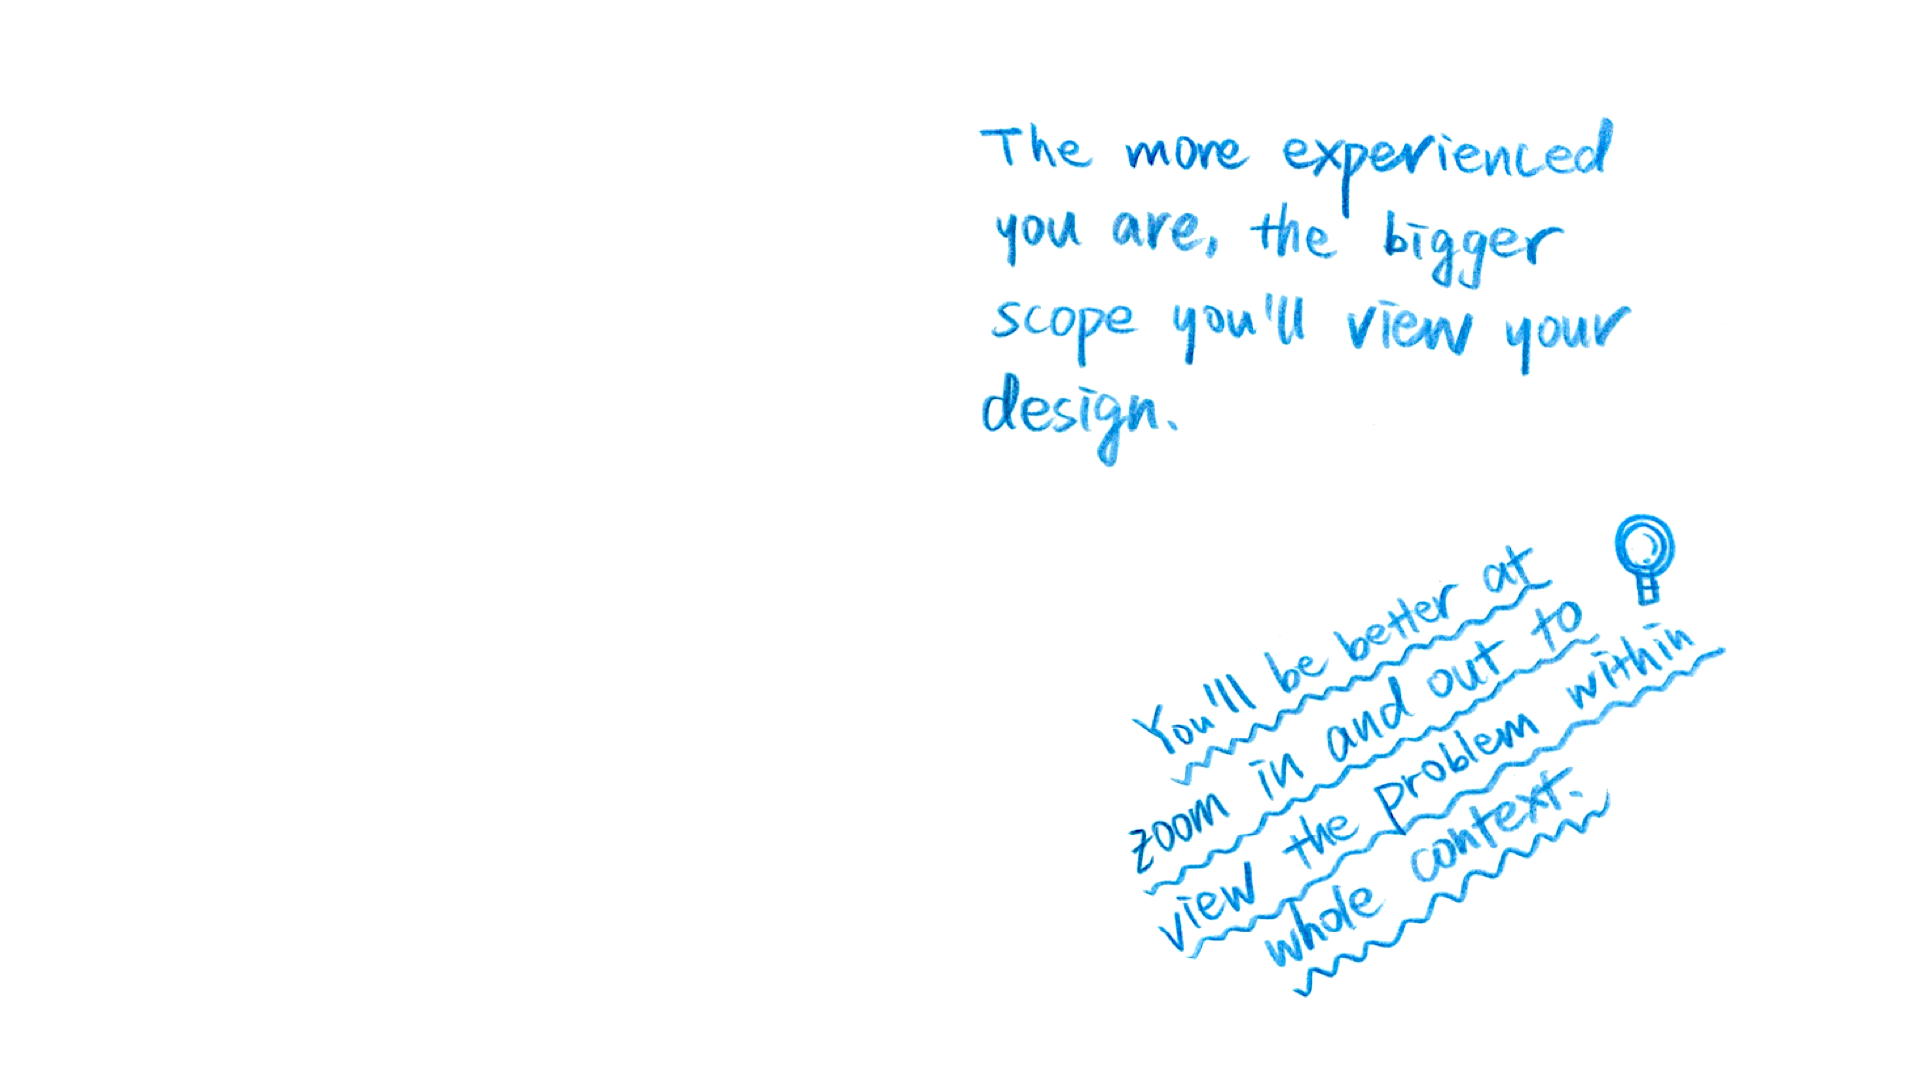 The more experienced
you are, the bigger
scope you'll view your
design.
You'll be better at
zoom in and out to
view the problem within
whole context.